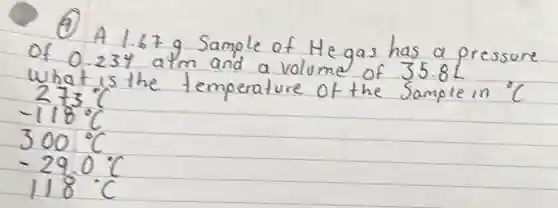 9 A 1.67 g Sample of He gas has a pressure
of 0.234 atm and a volume of 35.8L
What is the temperature of the Sample in °C
273 °C
-118 °C
300 °C
-29.0 °C
118 °C